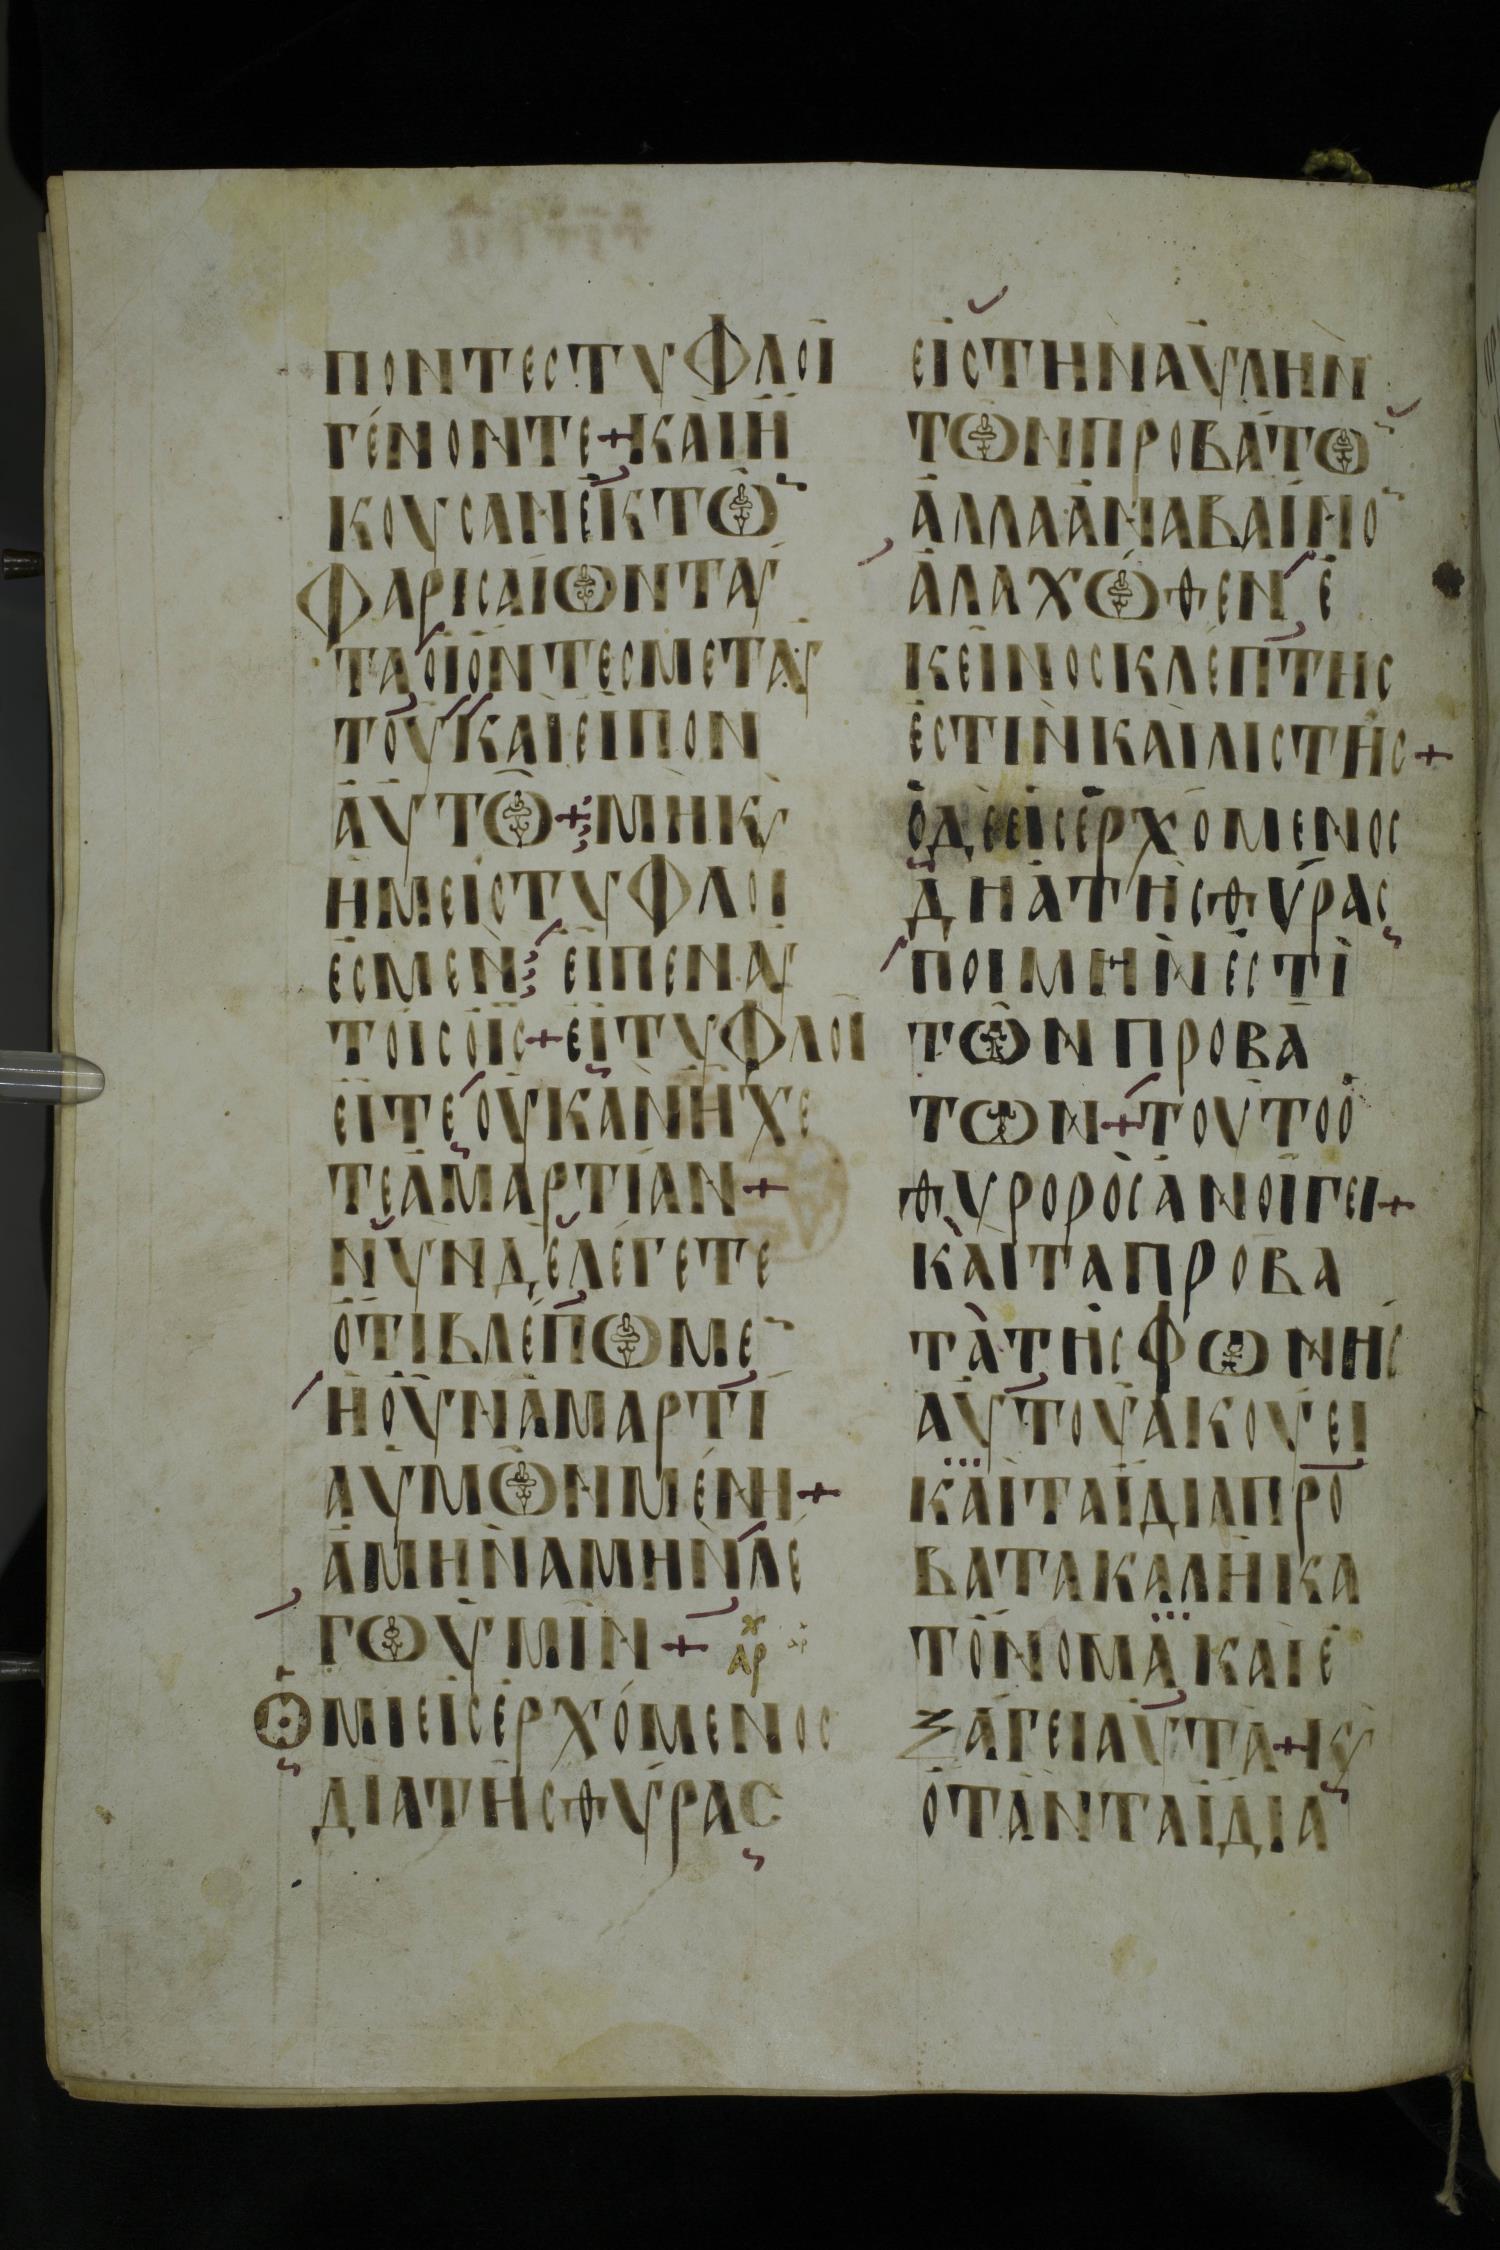 ΠΟΝΤΕСΤΥΦΛΟΙ
ΓΕΝΟΝΤΕ+ΚΑΙΗ
ΚΟΥСΑΝΕΚΤΩ̄
ΦΑΡΙСΑΙΩΝΤΑΥ
ΤΑΟΙΟΝΤΕСΜΕΤΑΥ
ΤΟΥΚΑΙΕΙΠΟΝ
ΑΥΤΩ+ΜΗΚΥ
ΗΜΕΙСΤΥΦΛΟΙ
ΕСΜΕΝ⁝ΕΙΠΕΝΑΥ
ΤΟΙСΟΙС+ΕΙΤΥΦΛΟΙ
ΕΙΤΕΟΥΚΑΝΗΧΕ
ΤΕΑΜΑΡΤΙΑΝ+
ΝΥΝΔΕΛΕΓΕΤΕ
ΟΤΙΒΛΕΠΩΜΕ̄
ΗΟΥΝΑΜΑΡΤΙ
ΑΥΜΩΝΜΕΝΗ+
ΑΜΗΝΑΜΗΝΛΕ
ΓΩΥΜΙΝ+ ΑΡΧ
ΟΜΙΕΙСΕΡΧΟΜΕΝΟС
ΔΙΑΤΗСΘΥΡΑС
ΕΙСΤΗΝΑΥΛΗΝ
ΤΩΝΠΡΟΒΑΤΩ̄
ΑΛΛΑΑΝΑΒΑΙΝΟ̄
ΑΛΑΧΩΘΕΝΕ
ΚΕΙΝΟСΚΛΕΠΤΗС
ΕСΤΙΝΚΑΙΛΙСΤΗС+
ΟΔΕΕΙСΕΡΧΟΜΕΝΟС
ΔΗΑΤΗСΘΥΡΑС
ΠΟΙΜΗΝΕСΤΙ
ΤΩΝΠΡΟΒΑ
ΤΩΝ+ΤΟΥΤΟΟ
ΘΥΡΟΡΟСΑΝΟΙΓΕΙ+
ΚΑΙΤΑΠΡΟΒΑ
ΤΑΤΗСΦΩΝΗС
ΑΥΤΟΥΑΚΟΥΕΙ
ΚΑΙΤΑΙΔΙΑΠΡΟ
ΒΑΤΑΚΑΛΗΚΑ
ΤΟΝΟΜΑΚΑΙΕ
ΞΑΓΕΙΑΥΤΑ+ΚΥ
ΟΤΑΝΤΑΙΔΙΑ